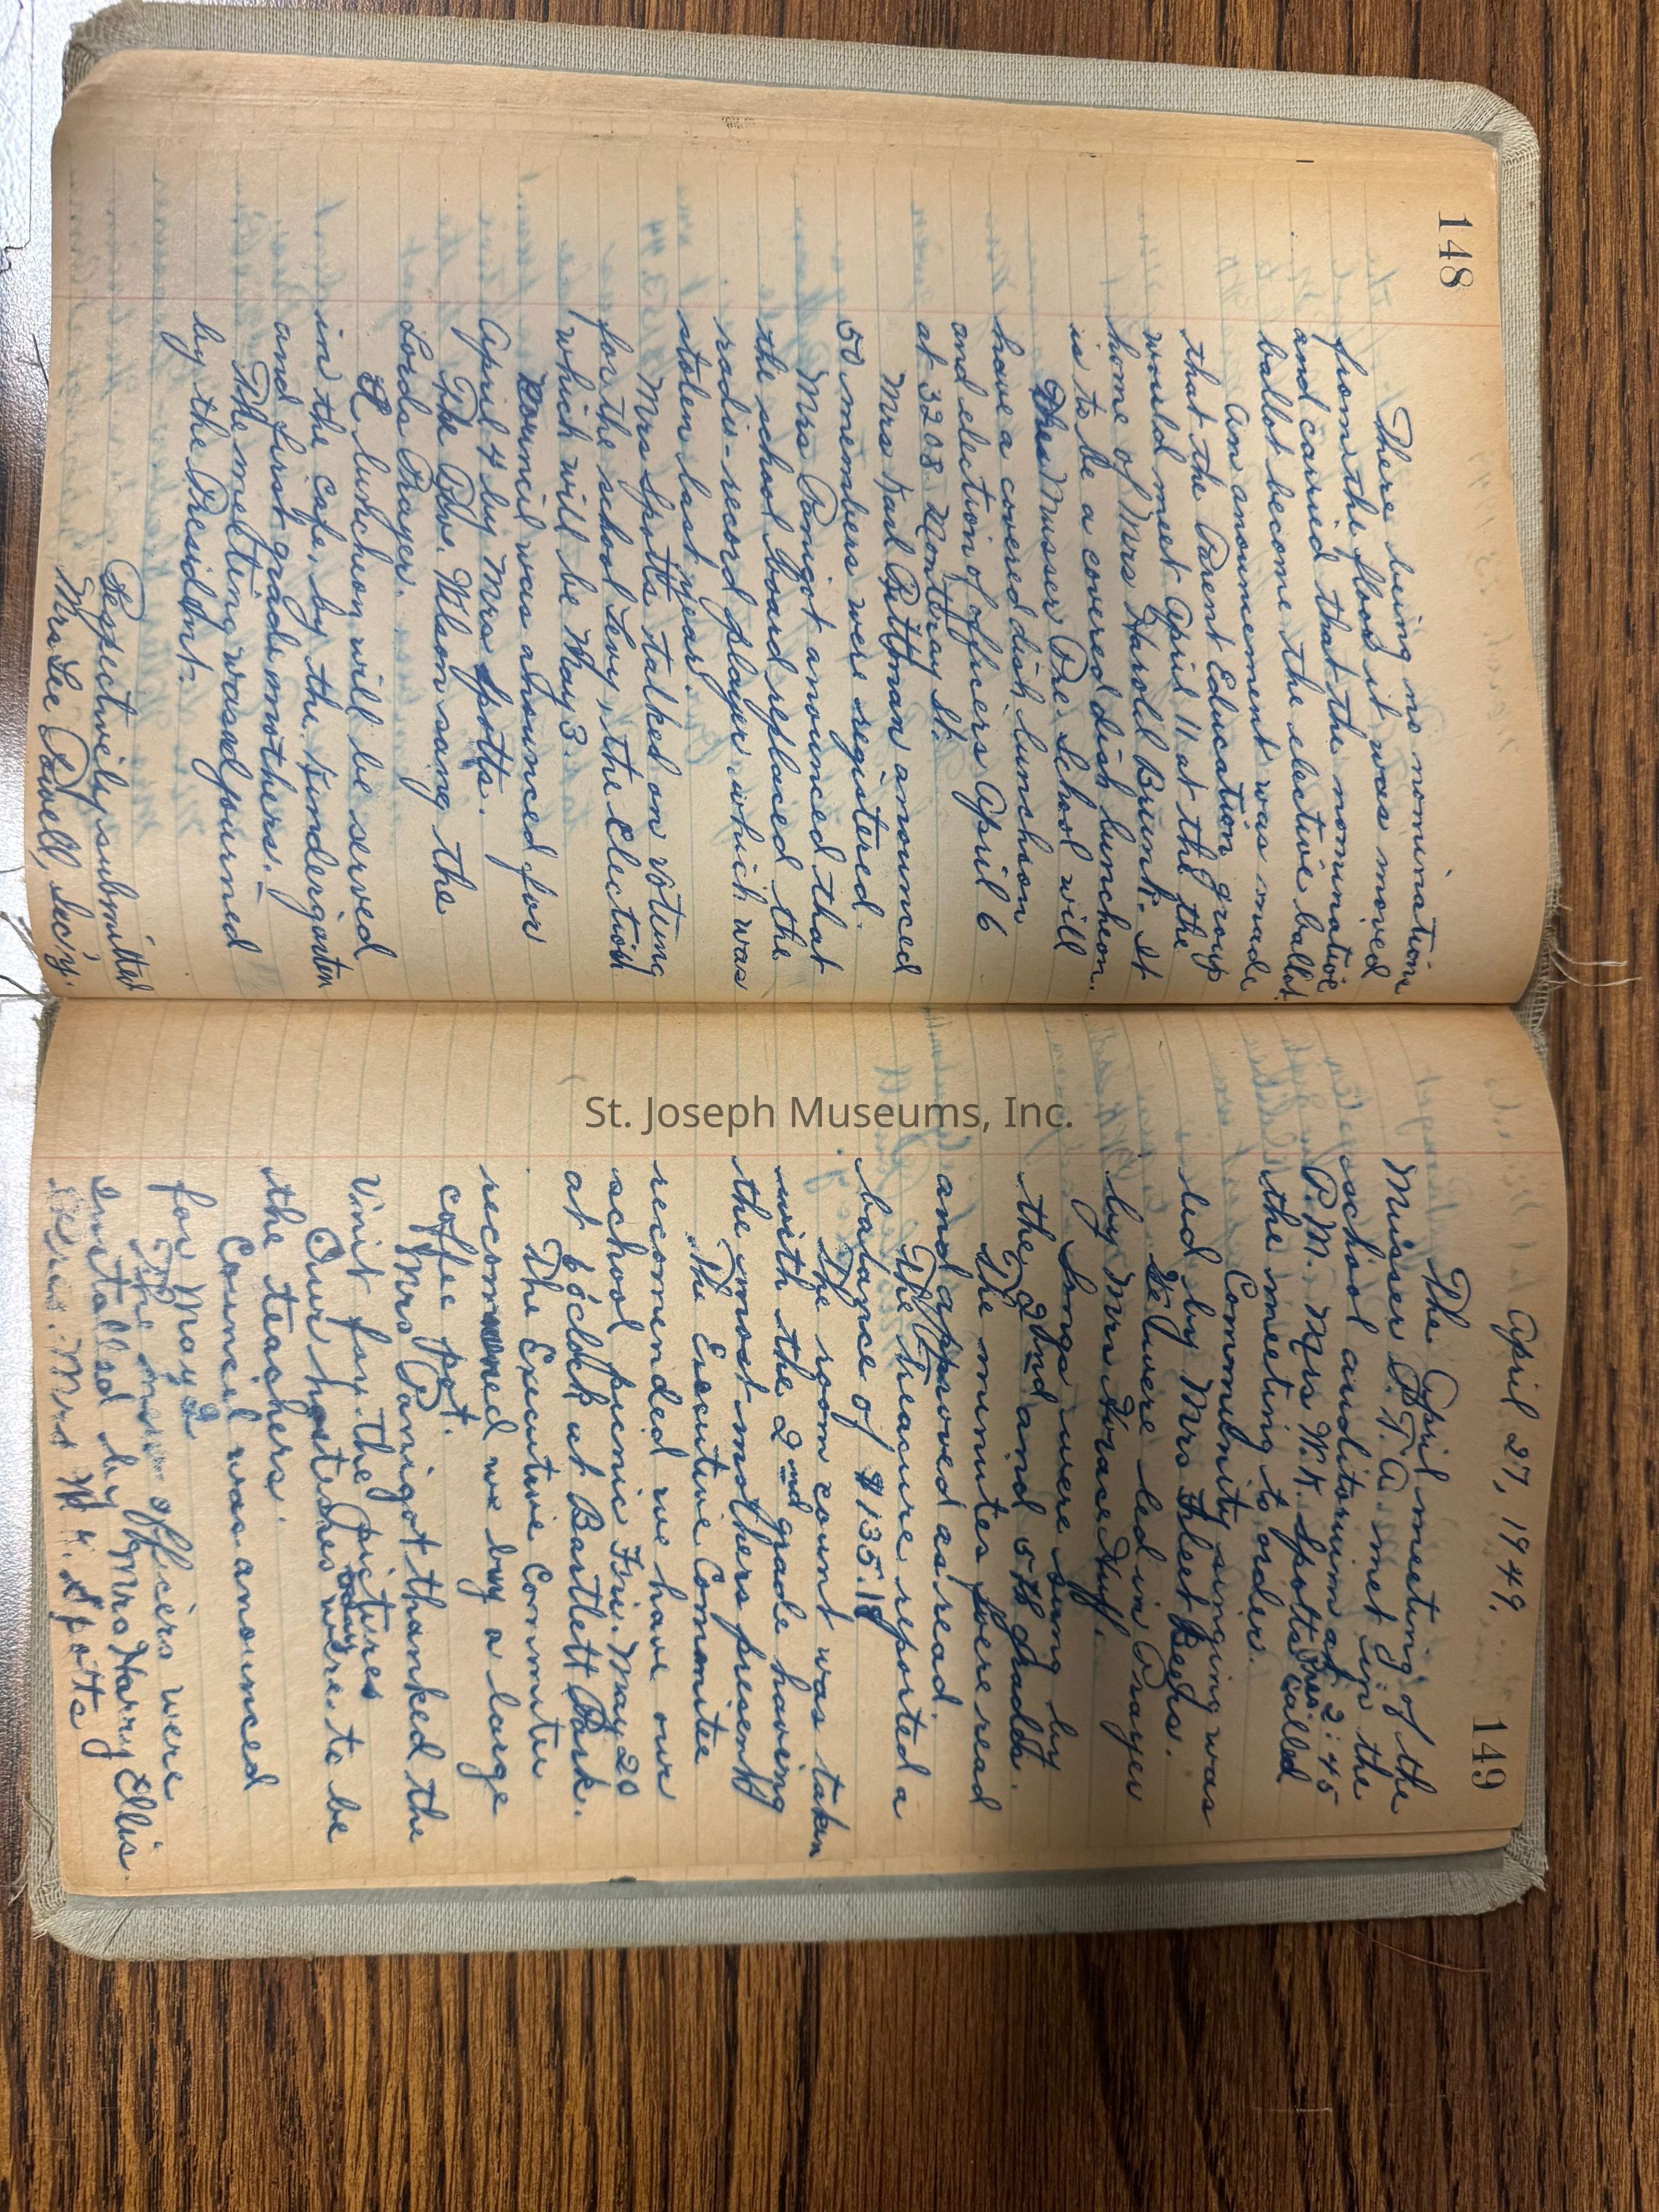 148
There being no nominations
from the floor it was moved
and carried that the nominative
ballot become the elective ballot.
An anouncement was made
that the Parent Education group
would meet April 11 at the the
home of Mrs Harold Brunk. It
is to be a covered dish luncheon.
The Musser Pre. School will
have a covered dish lunchson
and election of officers April 6
at 3208 Monteray St.
Mrs Karl Pittman anounced
50 members were registered.
Mrs Panigot anounced that
the school board replaced the
radio-record player which was
stolen last year.
Mrs Spotts talked on voting
for the school Levy, the Election
which will be May 3.
Council was anounced for
April 4 by Mrs Spotts.
The Rev. Wilson sang the
Lords Prayer.
A luncheon will be served
in the cafe, by the kindergarten
and first grade mothers.
The meeting was adjourned
by the President.
Respectively submitted
Mrs Lee Powell, Sec'y.
149
April 27, 1949.
The April meeting of the
Musser P.T.A. met in the
school auditorium at 2:45
P.M. Mrs W.K. Spotts Pres called
the meeting to order.
Community singing was
led by Mrs Fleet Beghs.
We were led in Prayer
by Mrs Horace Huff.
Songs were sung by
the 2nd and 5th grades.
The minutes were read
and approved as read.
The treasure reported a
balance of $135.18
The room count was taken
with the 2nd grade having
the most mothers present
The Executive Committee
recomended we have our
school picnic Fri. May 20
at 6 o'clock at Bartlett Park.
The Executive Committee
recommened we buy a large
coffee pot.
Mrs Panigot thanked the
Unit for the pictures
Our hostesses today were to be
the teachers.
Council was anounced
for May 2
The new officers were
installed by Mrs Harry Ellis.
Mrs W. K. Spotts
St. Joseph Museums, Inc.